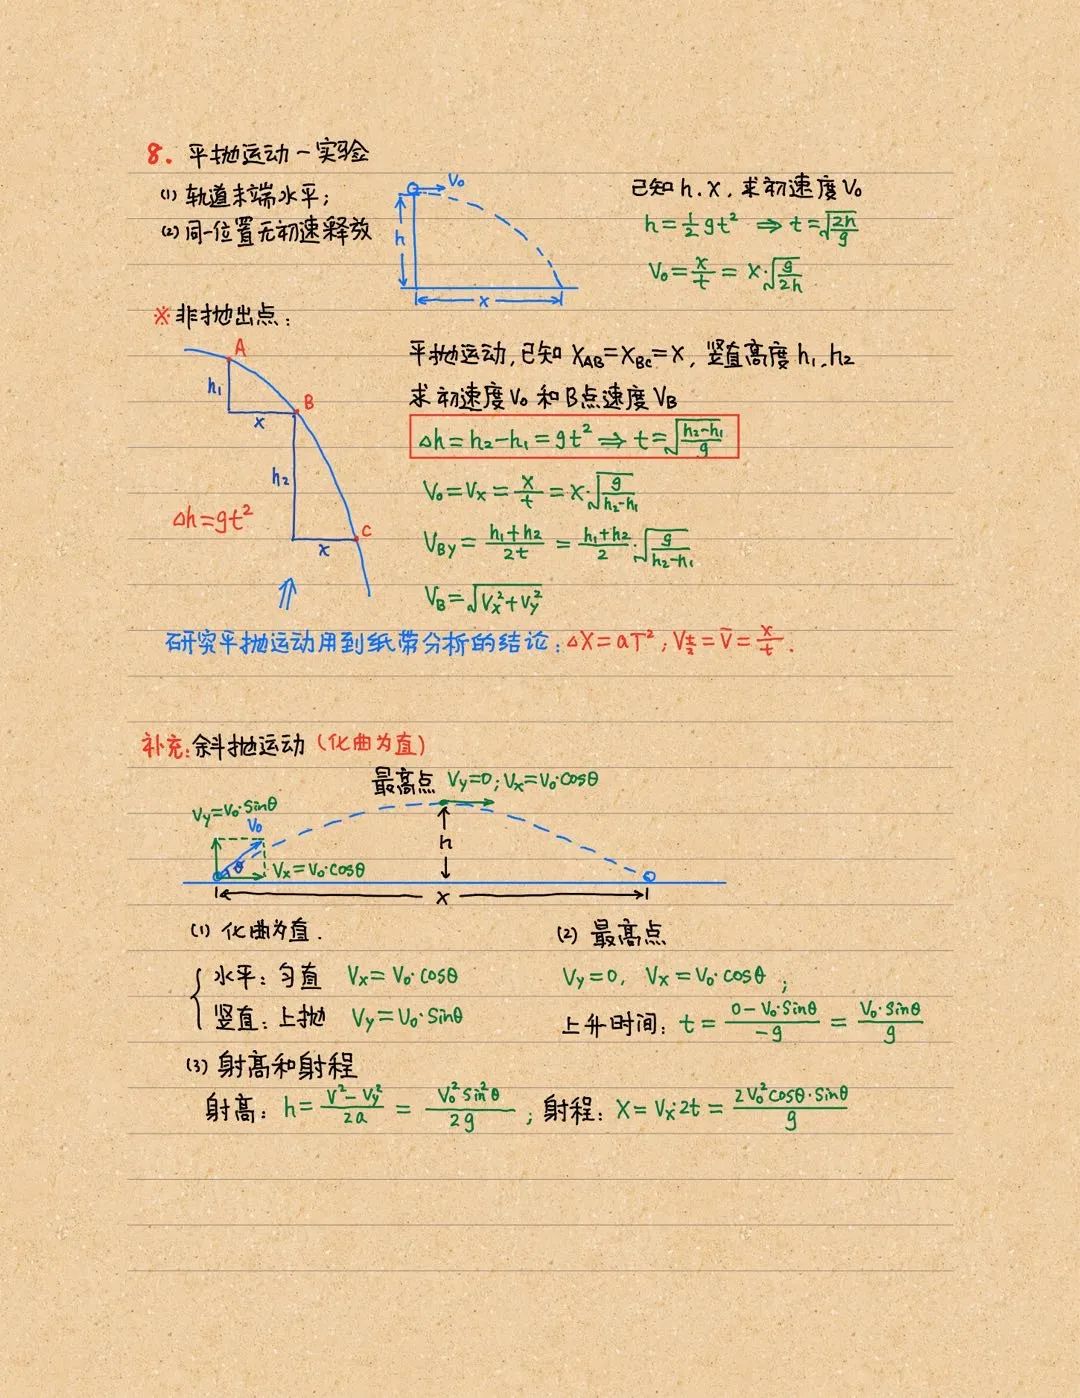 8. 平抛运动-实验
(1) 轨道末端水平;
(2) 同一位置无初速释放
V₀
h
x
已知 h.x. 求初速度V₀
h=½gt² ⇒ t=√(2h/g)
V₀=x/t=x·√(g/2h)
※非抛出点:
A
h₁
x
B
h₂
x
C
Δh=gt²
平抛运动,已知 X_AB=X_BC=X, 竖直高度 h₁.h₂
求初速度V₀和B点速度V_B
Δh=h₂-h₁=gt² ⇒ t=√((h₂-h₁)/g)
V₀=Vx=x/t=x·√(g/(h₂-h₁))
V_By=(h₁+h₂)/2t=(h₁+h₂)/2·√(g/(h₂-h₁))
V_B=√(Vx²+Vy²)
研究平抛运动用到纸带分析的结论:ΔX=aT²;V_(t/2)=V̄=x/t.
补充:斜抛运动(化曲为直)
最高点 Vy=0;Vx=V₀·cosθ
Vy=V₀·sinθ
V₀
θ
Vx=V₀·cosθ
h
x
(1) 化曲为直.
水平:匀直 Vx=V₀·cosθ
竖直:上抛 Vy=V₀·sinθ
(2) 最高点
Vy=0, Vx=V₀·cosθ;
上升时间: t=(0-V₀·sinθ)/-g=V₀·sinθ/g
(3) 射高和射程
射高: h=(V²-Vy²)/2a=V₀²sin²θ/2g; 射程: X=Vx·2t=2V₀²cosθ·sinθ/g